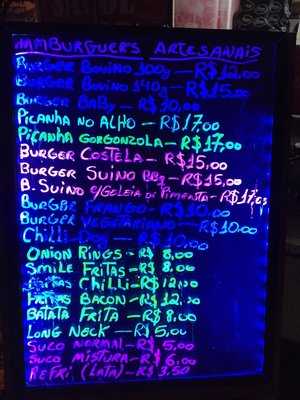 HAMBURGUERS ARTESANAIS
BURGER BOVINO 100g — R$12,00
BURGER BOVINO 140g — R$15,00
BURGER BABY — R$10,00
PICANHA NO ALHO — R$17,00
PICANHA GORGONZOLA — R$17,00
BURGER COSTELA — R$15,00
BURGER SUINO BBQ — R$15,00
B. SUINO C/GELEIA DI PIMENTA — R$17,00
BURGER FRANGO — R$10,00
BURGER VEGETARIANO — R$10,00
CHILLI DOG — R$10,00
ONION RINGS — R$ 8,00
SMILE FRITAS — R$ 8,00
FRITAS CHILLI — R$12,00
FRITAS BACON — R$12,00
BATATA FRITA — R$ 8,00
LONG NECK — R$5,00
SUCO NORMAL — R$ 5,00
SUCO MISTURA — R$ 6,00
REFRI (LATA) — R$ 3,50